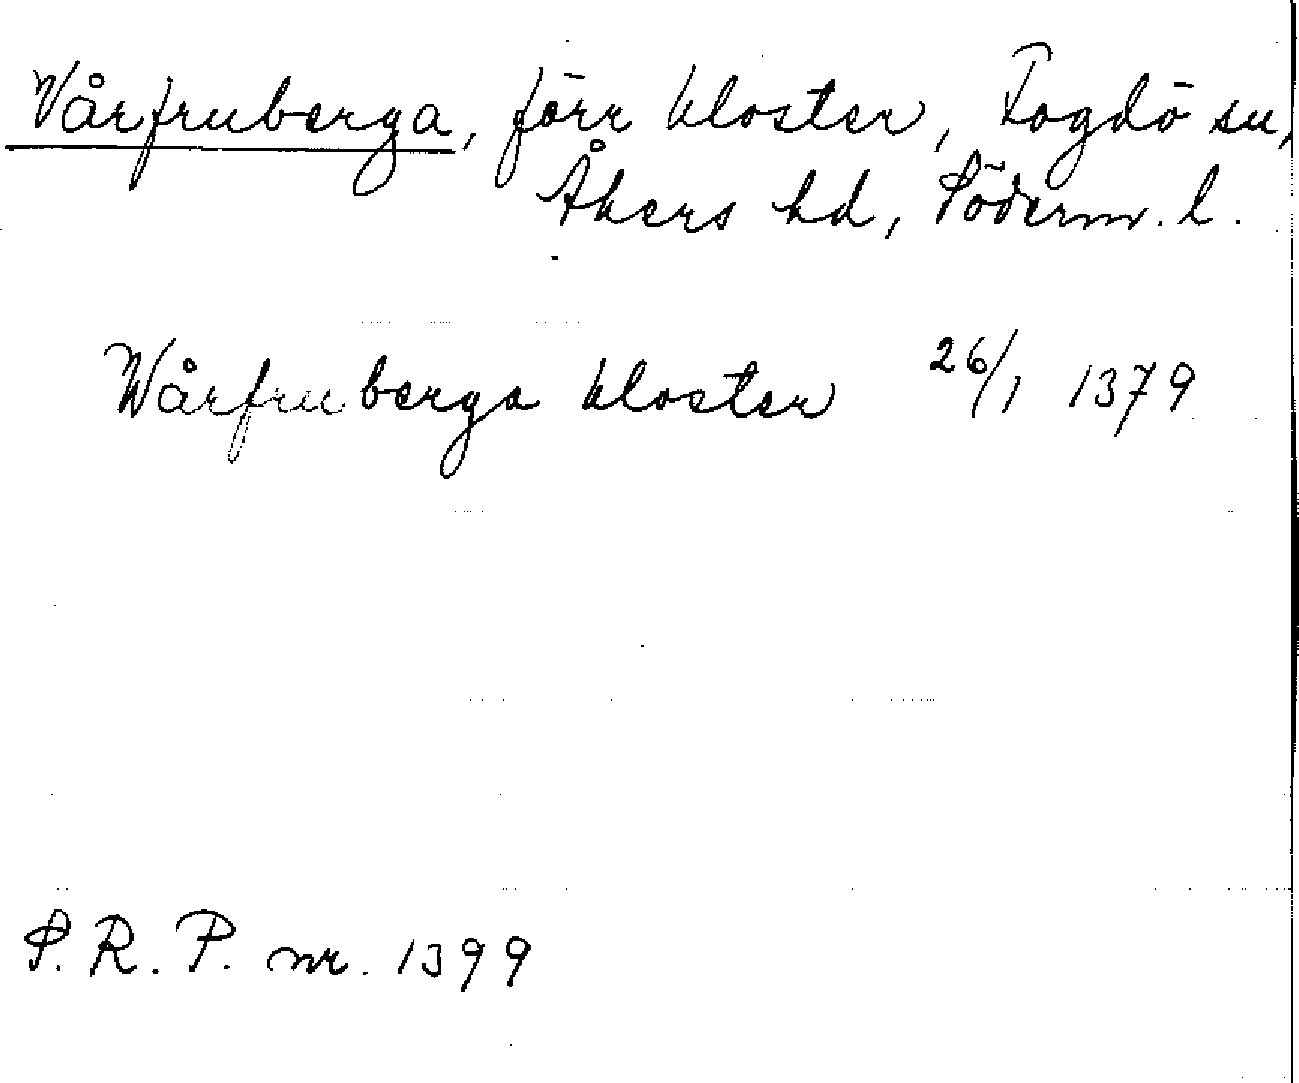 Vårfruberga, förr kloster, Fogdö sn,
Åkers hd, Söderm. l.
Wårfruberga kloster 26/1 1379
S. R. P. nr. 1399